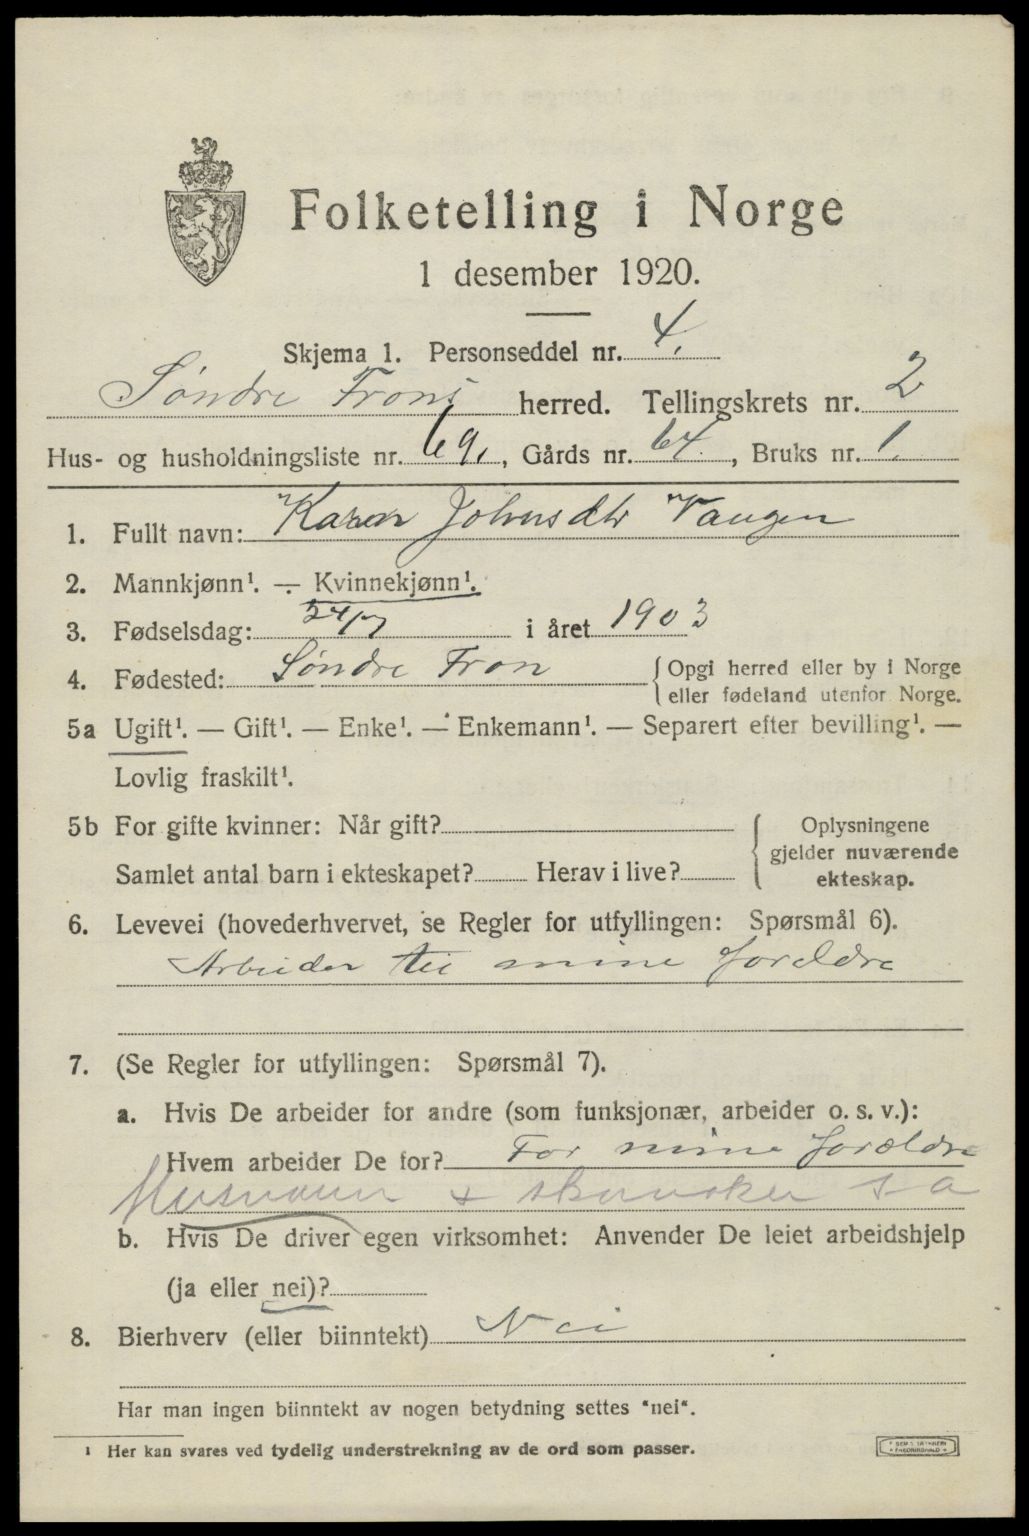 Folketelling i Norge
1 desember 1920.
Skjema 1. Personseddel nr. 4.
Søndre Frons herred. Tellingskrets nr. 2
Hus- og husholdningsliste nr. 69., Gårds nr. 64., Bruks nr. 1.
1. Fullt navn: Karen Johnsdtr Vangen
2. Mannkjønn¹. — Kvinnekjønn¹.
3. Fødselsdag: 24/7 i året 1903
4. Fødested: Søndre Fron {Opgi herred eller by i Norge
eller fødeland utenfor Norge.
5a Ugift¹. — Gift¹. — Enke¹. — Enkemann¹. — Separert efter bevilling¹. —
Lovlig fraskilt¹.
5b For gifte kvinner: Når gift?
Samlet antal barn i ekteskapet? Herav i live?
{Oplysningene
gjelder nuværende
ekteskap.
6. Levevei (hovederhvervet, se Regler for utfyllingen: Spørsmål 6).
Arbeider til mine foreldre
7. (Se Regler for utfyllingen: Spørsmål 7).
a. Hvis De arbeider for andre (som funksjonær, arbeider o. s. v.):
Hvem arbeider De for? For mine forældre
Husmann + s a
b. Hvis De driver egen virksomhet: Anvender De leiet arbeidshjelp
(ja eller nei)?
8. Bierhverv (eller biinntekt) Nei
Har man ingen biinntekt av nogen betydning settes "nei".
¹ Her kan svares ved tydelig understrekning av de ord som passer.